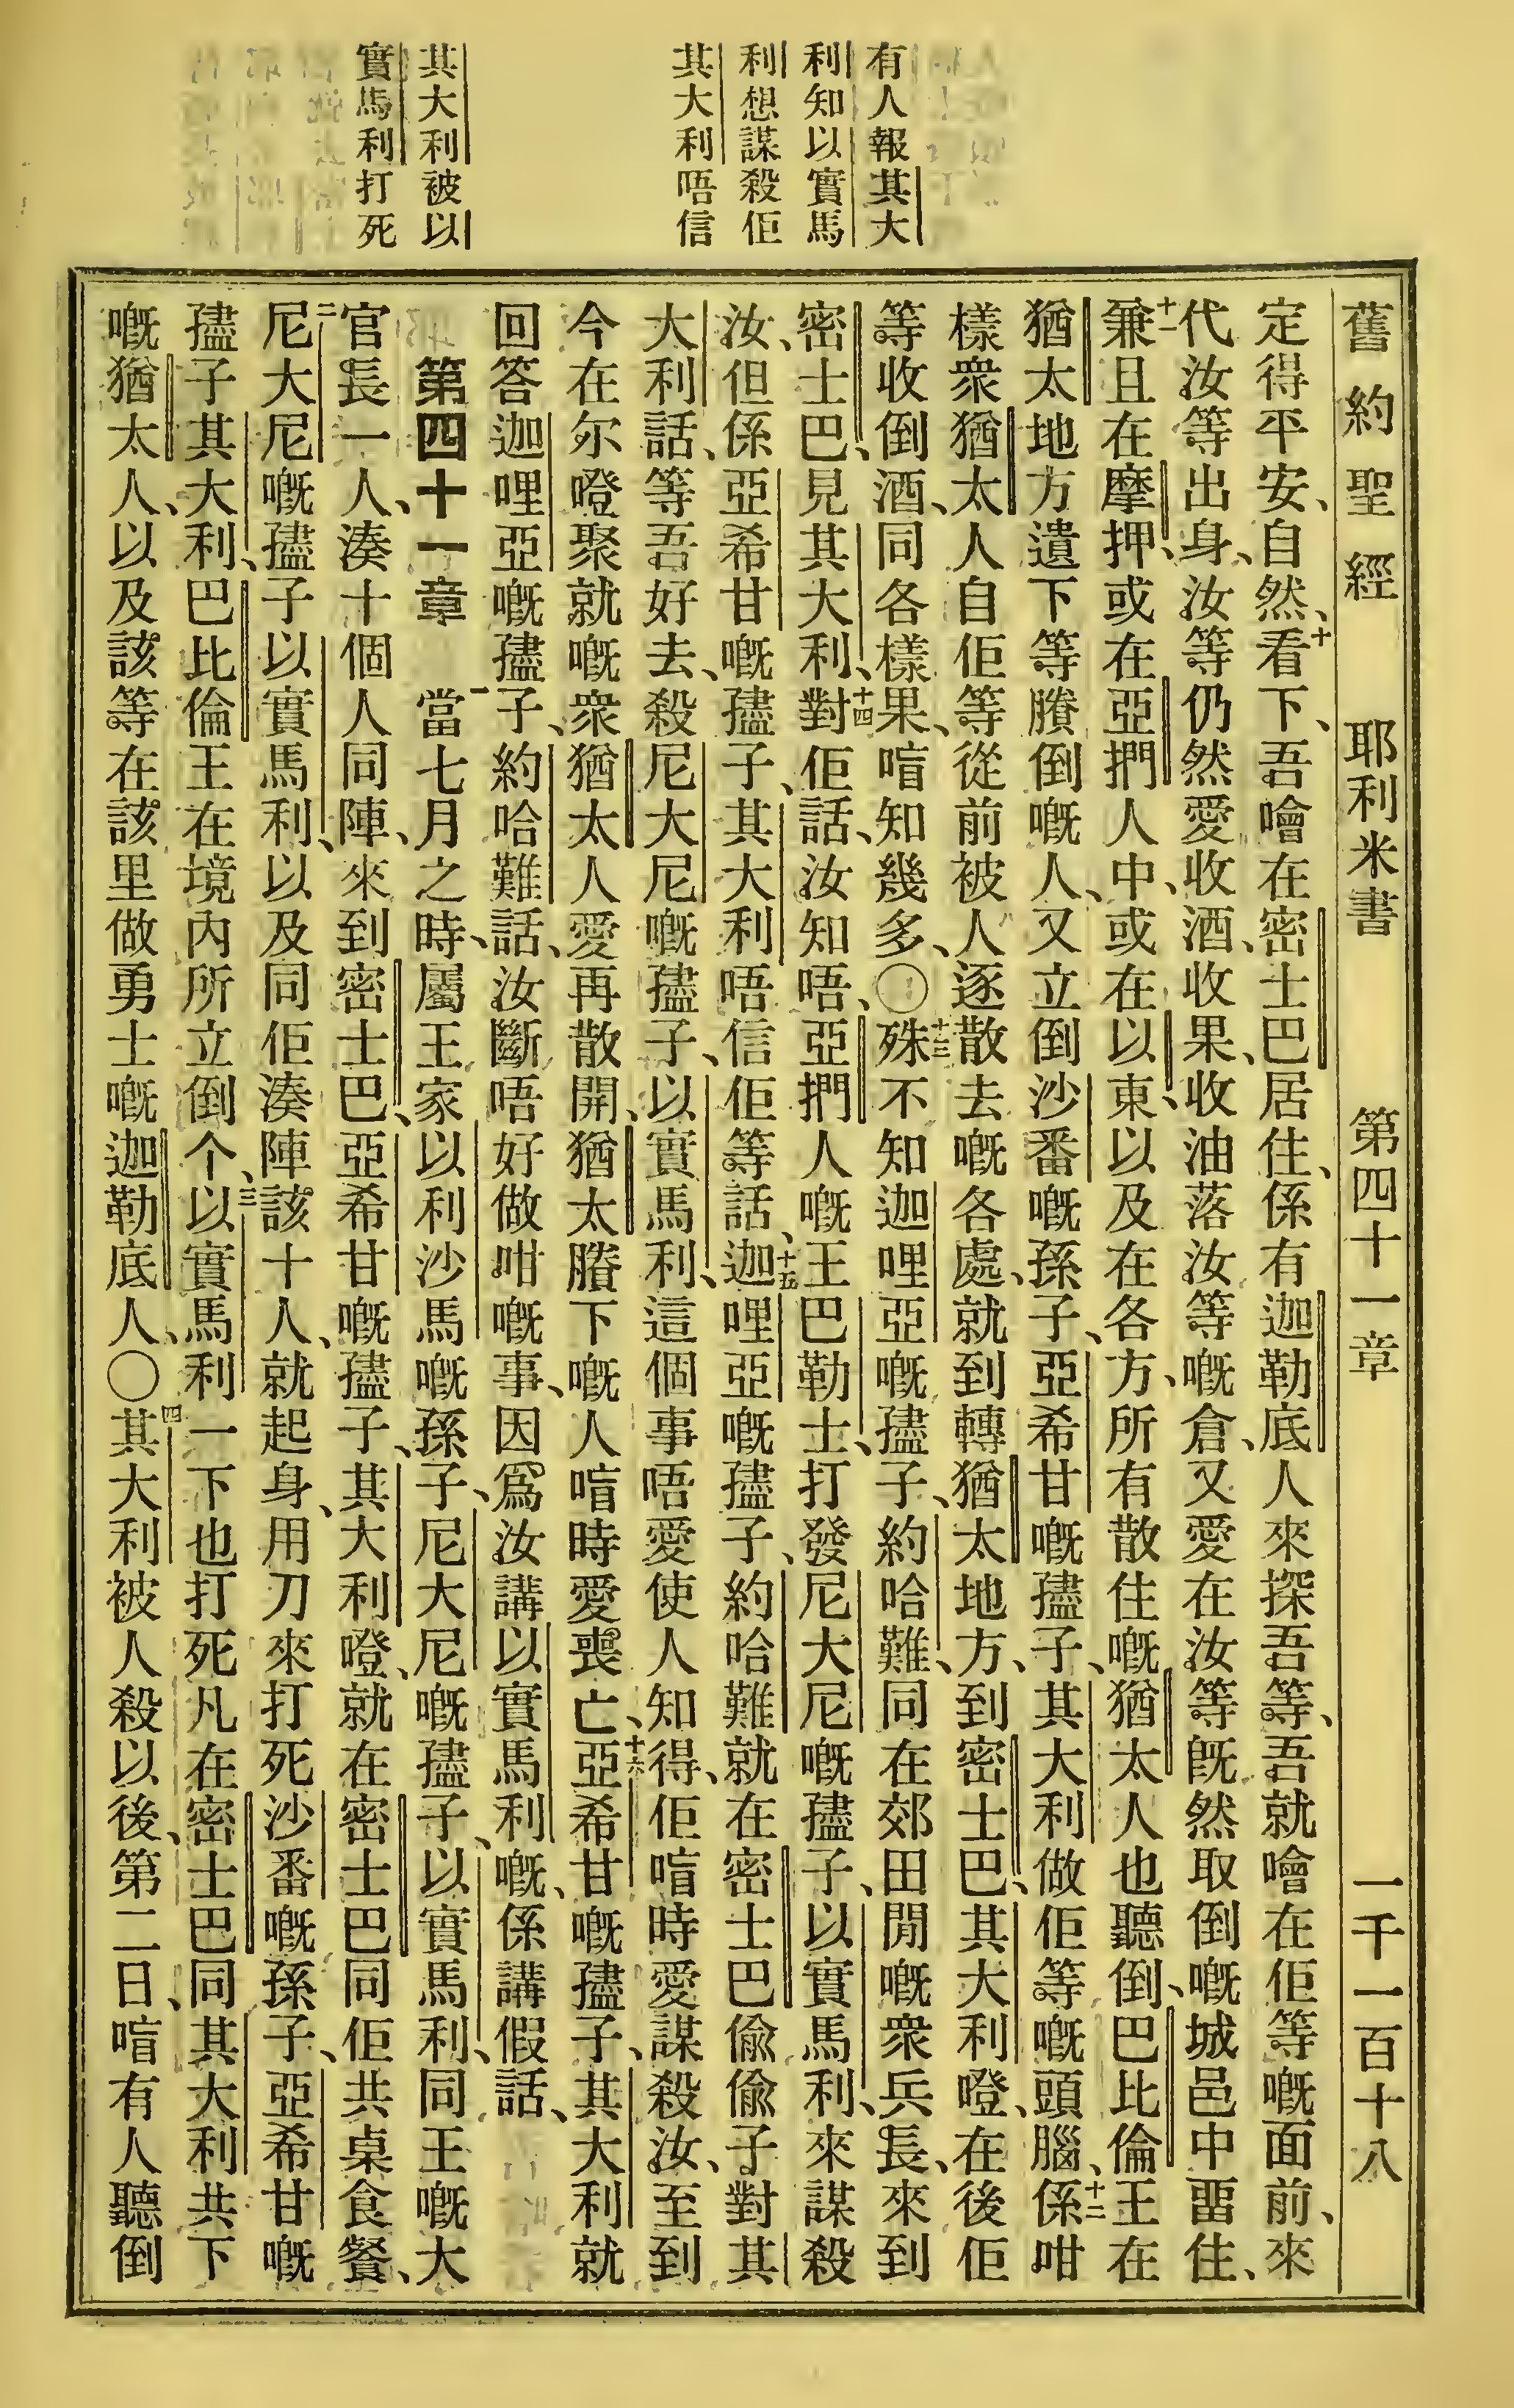 有人報其大
利知以實馬
利想謀殺佢
其大利唔信
其大利被以
實馬利打死
舊約聖經 耶利米書 第四十一章 一千一百十八
定得平安、自然、十看下、吾噲在密士巴居住、係有迦勒底人來探吾等、吾就噲在佢等嘅面前、來
代汝等出身、汝等仍然愛收酒、收果、收油落汝等嘅倉、又愛在汝等旣然取倒嘅城邑中畱住、
十一兼且在摩押、或在亞捫人中、或在以東、以及在各方、所有散住嘅猶太人也聽倒、巴比倫王在
猶太地方遺下等賸倒嘅人、又立倒沙番嘅孫子、亞希甘嘅孻子、其大利做佢等嘅頭腦、十二係咁
樣衆猶太人自佢等從前被人逐散去嘅各處、就到轉猶太地方、到密士巴、其大利噔、在後佢
等收倒酒、同各樣果、㖡知幾多、〇十三殊不知迦哩亞嘅孻子、約哈難、同在郊田閒嘅衆兵長、來到
密士巴、見其大利、十四對佢話、汝知唔、亞捫人嘅王巴勒士、打發尼大尼嘅孻子、以實馬利、來謀殺
汝、但係亞希甘嘅孻子、其大利唔信佢等話、十五迦哩亞嘅孻子、約哈難就在密士巴偸偸子對其
大利話、等吾好去、殺尼大尼嘅孻子、以實馬利、這個事唔愛使人知得、佢㖡時愛謀殺汝、至到
今在尔噔聚就嘅衆猶太人愛再散開、猶太賸下嘅人㖡時愛喪亡、十六亞希甘嘅孻子、其大利就
回答迦哩亞嘅孻子、約哈難話、汝斷唔好做咁嘅事、因爲汝講以實馬利嘅、係講假話、
第四十一章 一當七月之時、屬王家以利沙馬嘅孫子、尼大尼嘅孻子、以實馬利、同王嘅大
官長一人、湊十個人同陣、來到密士巴、亞希甘嘅孻子、其大利噔、就在密士巴同佢共桌食餐、
二尼大尼嘅孻子以實馬利、以及同佢湊陣該十人、就起身、用刀來打死沙番嘅孫子、亞希甘嘅
孻子其大利、巴比倫王在境內所立倒个、三以實馬利一下也打死凡在密士巴同其大利共下
嘅猶太人、以及該等在該里做勇士嘅迦勒底人、〇四其大利被人殺以後、第二日、㖡有人聽倒